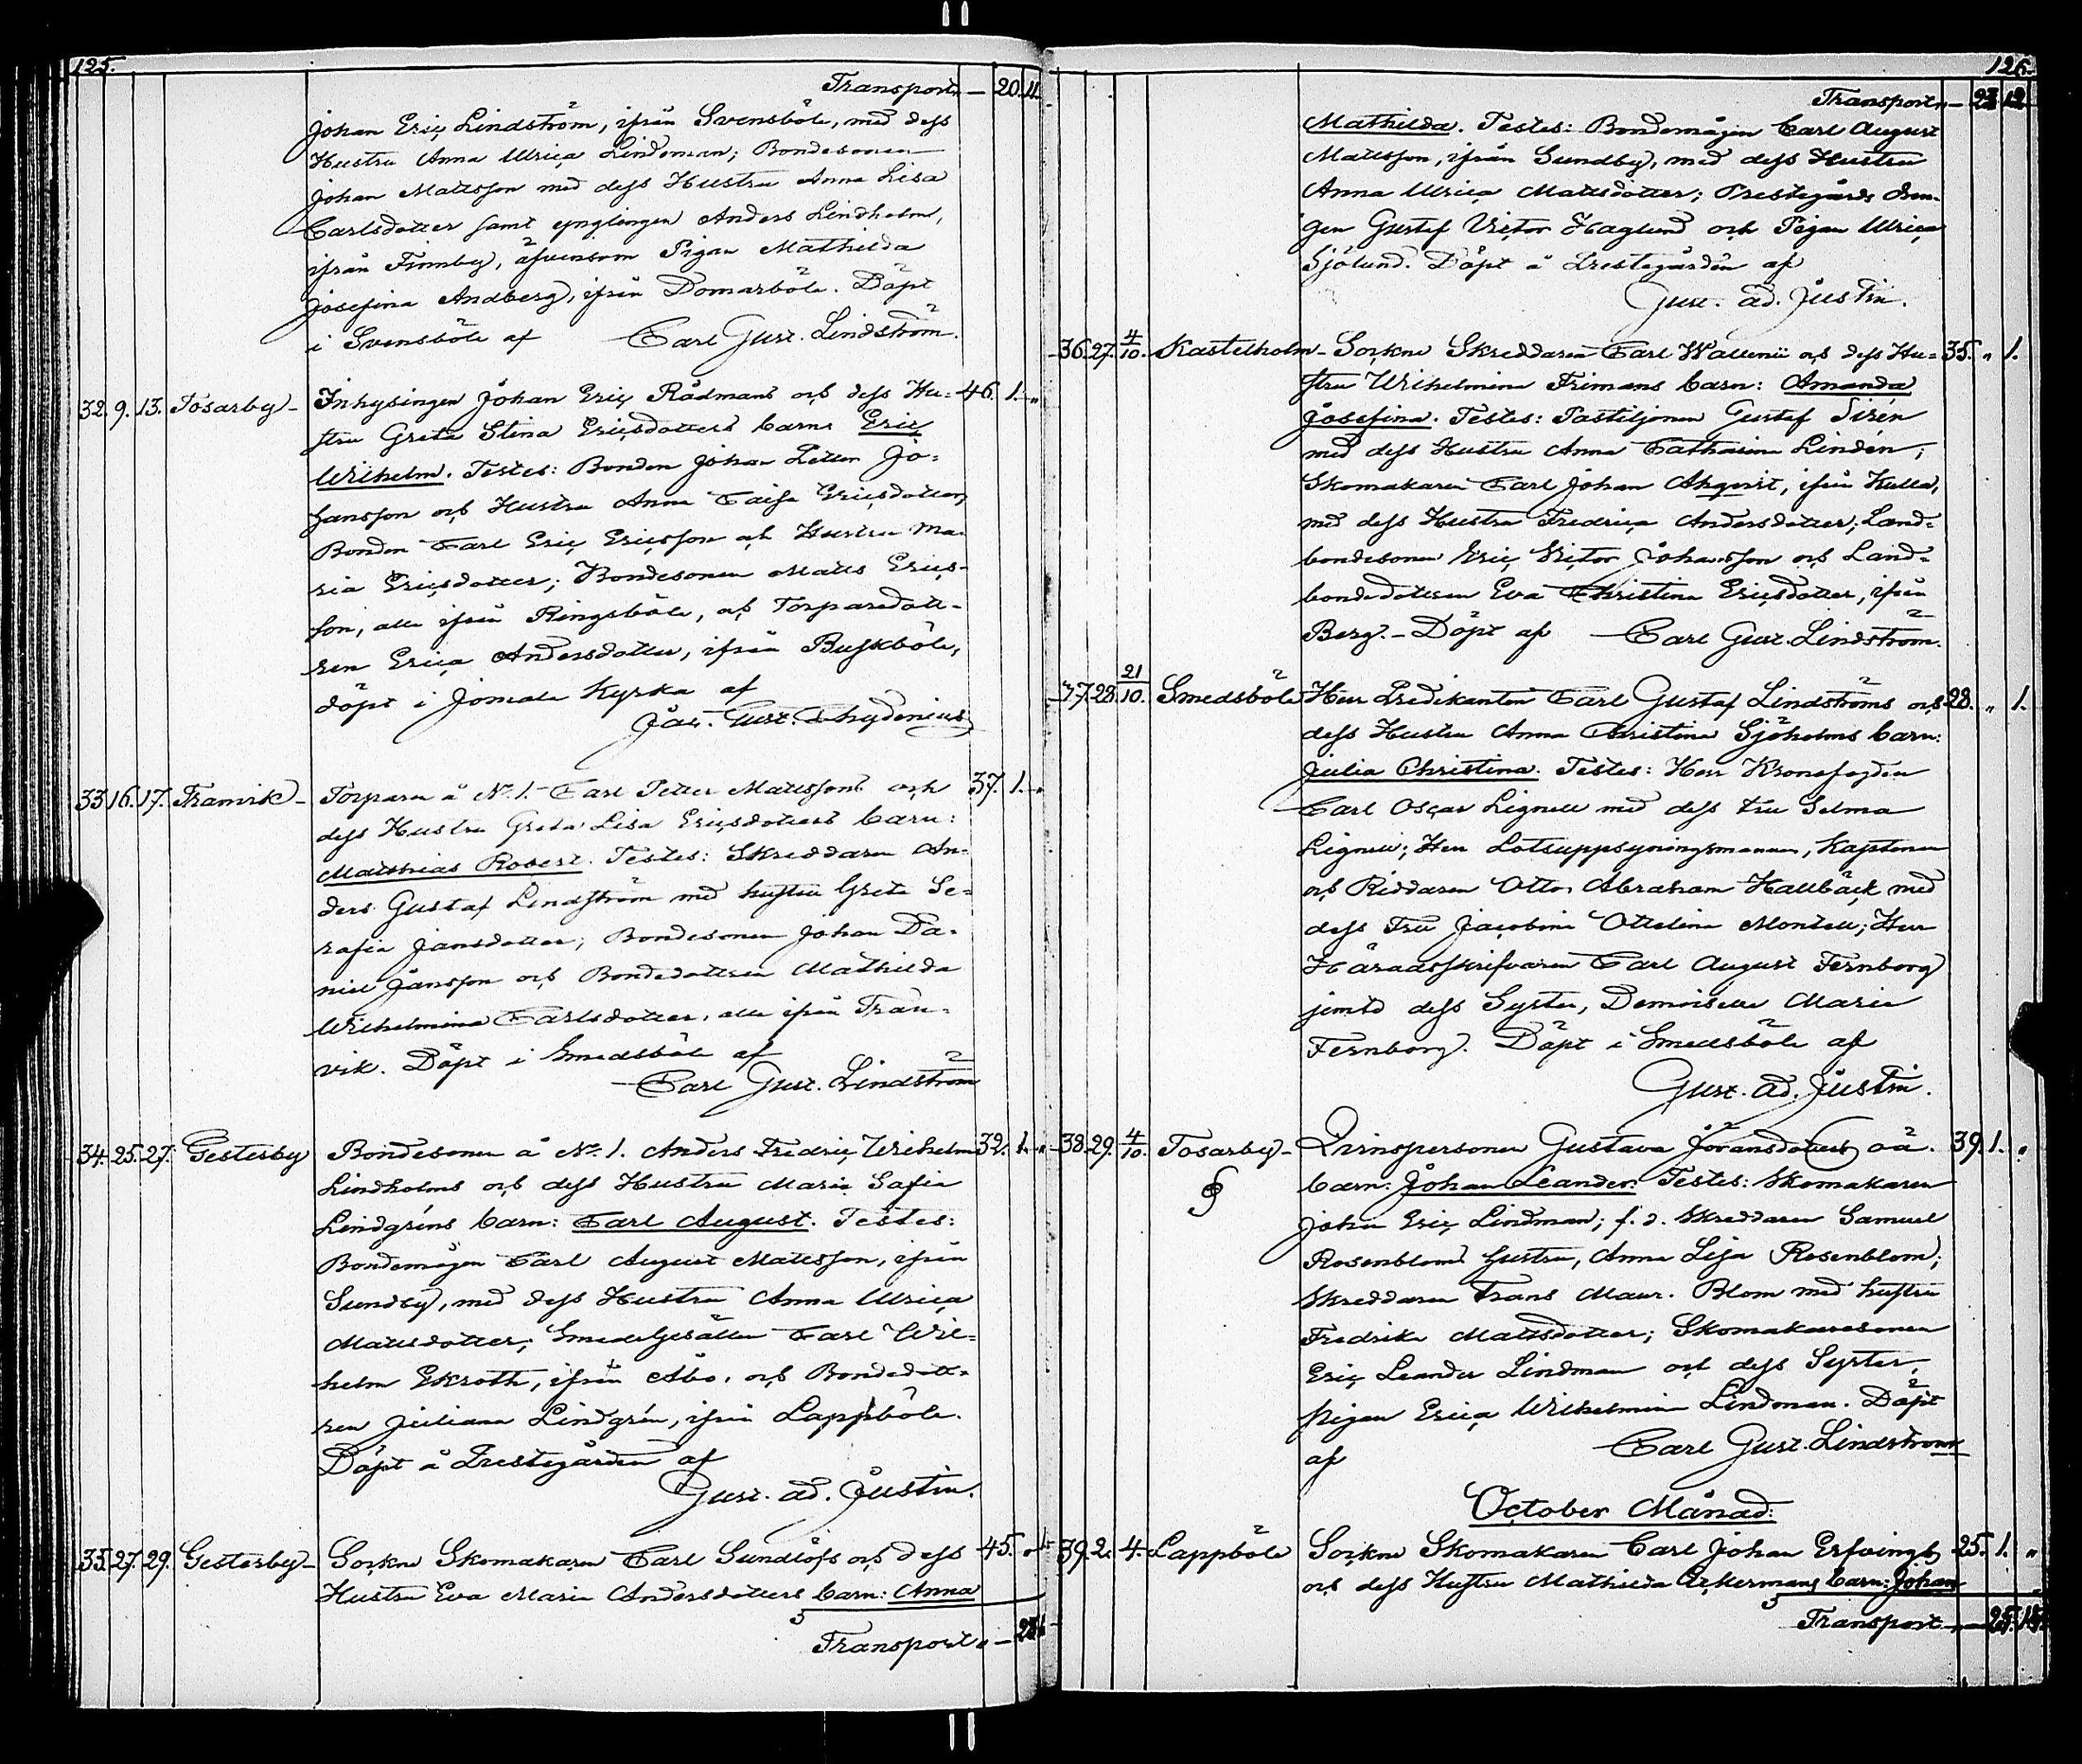 125.
Transport — 20. 11.
Johan Eric Lindström, ifrån Svensböle, med dess
Hustru Anna Ulrica Lindeman; Bondesonen
Johan Mattsson med dess Hustru Anna Lisa
Carlsdotter samt ynglingen Anders Lindholm,
ifrån Finnby, äfvensom Pigan Mathilda
Josefina Andberg, ifrån Domarböle. Döpt
i Svensböle af Carl Gust. Lindström.
32. 9. 13. Tosarby — Inhysingen Johan Eric Rådmans och dess Hu= 46. 1. "
stru Greta Stina Ericsdotters barn: Eric
Wilhelm. Testes: Bonden Johan Petter Jo=
hansson och Hustru Anna Caisa Ericsdotter,
Bonden Carl Eric Ericsson och Hustru Ma=
ria Ericsdotter; Bondesonen Matts Erics=
son, alla ifrån Ringsböle, och Torparedott=
ren Erica Andersdotter, ifrån Buskböle,
döpt i Jomala Kyrka af
Jac. Gust. Chydenius
33. 16. 17. Tranvik — Torparen å No 1. Carl Petter Mattssons och 37. 1. "
dess Hustru Greta Lisa Ericsdotters barn:
Matthias Robert. Testes: Skreddaren An=
ders Gustaf Lindström med hustru Greta Se=
rafia Jansdotter; Bondesonen Johan Da=
niel Jansson och Bondedottren Mathilda
Wilhelmina Carlsdotter, alla ifrån Tran=
vik. Döpt i Smedsböle af
Carl Gust. Lindström
34. 25. 27. Gesterby Bondesonen å No 1. Anders Fredric Wilhelm 32. 1. "
Lindholms och dess Hustru Maria Sofia
Lindgréns barn: Carl August. Testes:
Bondemågen Carl August Mattsson, ifrån
Sundby, med dess Hustru Anna Ulrica
Mattsdotter; Smedsgesällen Carl Wil=
helm Ekroth, ifrån Åbo, och Bondedott=
ren Juliana Lindgrén, ifrån Lappböle.
Döpt å Prestegården af
Gust. Ad. Justin.
35. 27. 29. Gesterby — Sockne Skomakaren Carl Sundlöfs och dess 45. " 1.
Hustru Eva Maria Andersdotters barn: Anna
Transport —
126.
Transport — 23. 12.
Mathilda. Testes: Bondemågen Carl August
Mattsson, ifrån Sundby, med dess Hustru
Anna Ulrica Mattsdotter; Prestegårds drän=
gen Gustaf Victor Haglund och Pigan Ulrica
Sjölund. Döpt å Prestegården af
Gust. Ad. Justin.
36. 27. 4/10. Kastelholm — Sockne Skreddaren Carl Wallenii och dess Hu= 35. " 1.
stru Wilhelmina Frimans barn: Amanda
Josefina. Testes: Postiljonen Gustaf Sirén
med dess Hustru Anna Catharina Lindén;
Skomakaren Carl Johan Ahlqvist, ifrån Kulla,
med dess Hustru Fredrica Andersdotter; Land=
bondesonen Eric Victor Johansson och Land=
bondedottren Eva Christina Ericsdotter, ifrån
Berg. — Döpt af Carl Gust. Lindström.
37. 28. 21/10. Smedsböle Herr Predikanten Carl Gustaf Lindströms och 28. " 1.
dess Hustru Anna Christina Sjöholms barn:
Julia Christina. Testes: Herr Kronofogden
Carl Oscar Lignell med dess Fru Selma
Lignell; Herr Lotsuppsyningsmannen, Kaptenen
och Riddaren Otto Abraham Hallbäck med
dess Fru Jacobina Ottelina Montell; Herr
Häradsskrifvaren Carl August Fernborg
jemte dess Syster, Demoiselle Maria
Fernborg. Döpt i Smedsböle af
Gust. Ad. Justin.
38. 29. 4/10. Tosarby — Qvinspersonen Gustava Joransdotters oä. 39. 1. "
barn: Johan Leander. Testes: Skomakaren
Johan Eric Lindman; f. d. Skreddaren Samuel
Rosenbloms hustru, Anna Lisa Rosenblom;
Skreddaren Frans Maur. Blom med hustru
Fredrika Mattsdotter; Skomakaresonen
Eric Leander Lindman och dess Syster,
Pigan Erica Wilhelmina Lindman. Döpt
af Carl Gust. Lindström
October Månad:
39. 2. 4. Lappböle Sockne Skomakaren Carl Johan Erfvings 25. 1. "
och dess Hustru Mathilda Åckermans barn: Johan
Transport —